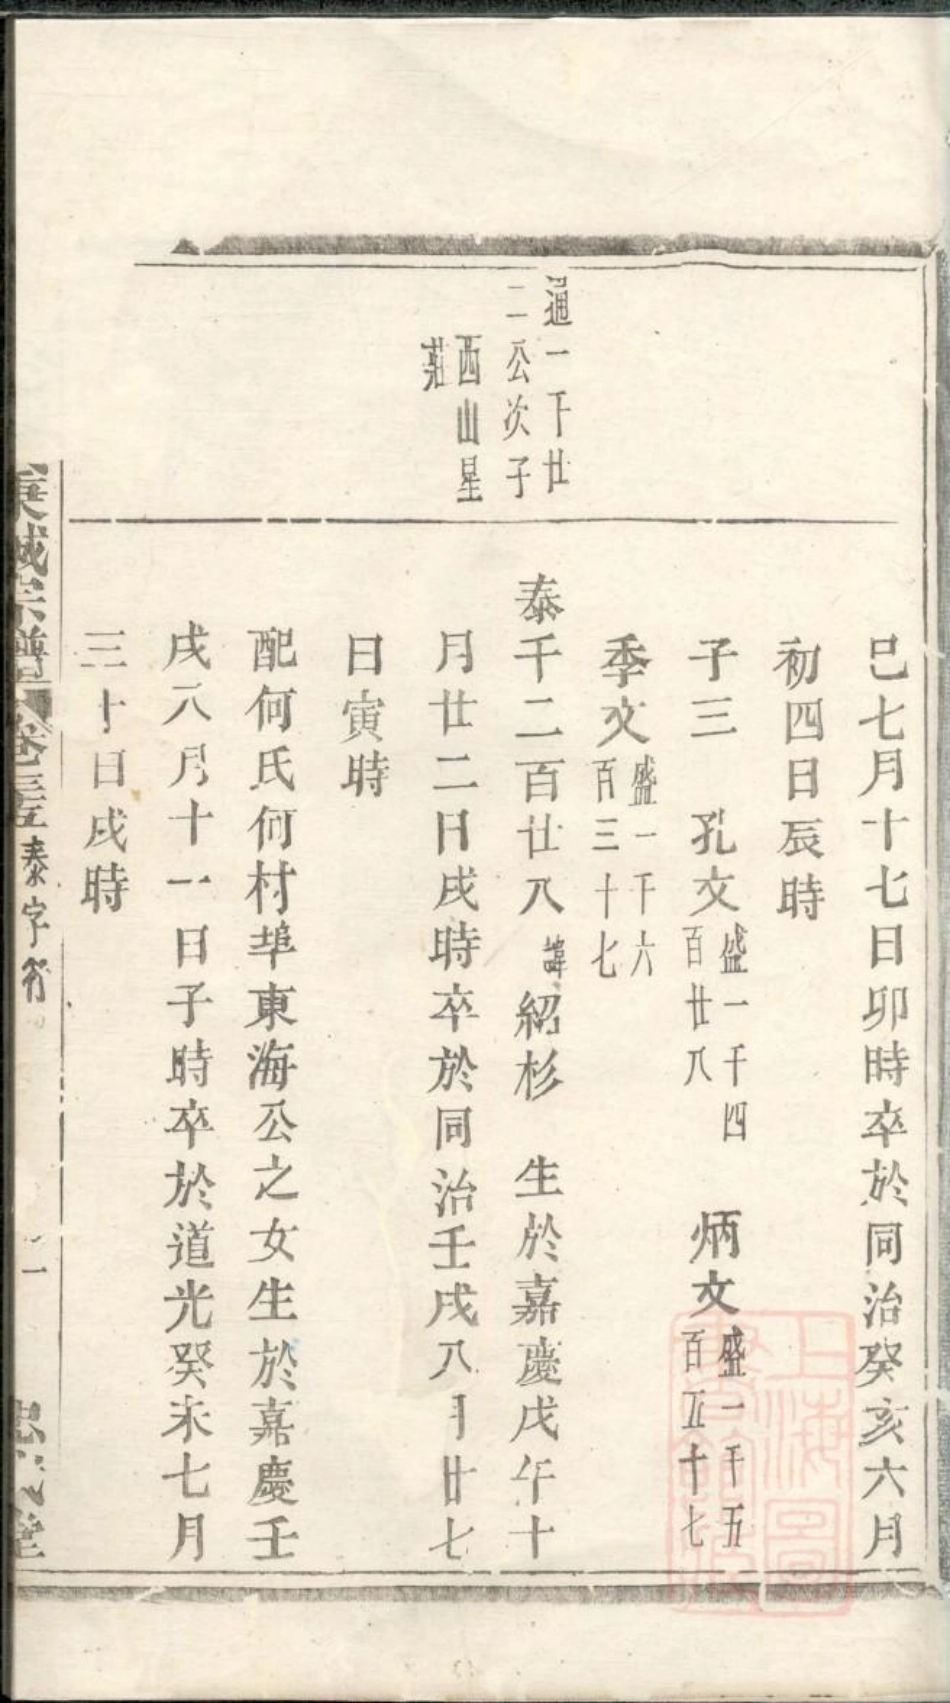 巳七月十七日卯時卒於同治癸亥六月
初四日辰時
子三 孔文盛一千四百廿八 炳文盛一千五百五十七
季文盛一千六百三十七
通一千廿
二公次子
西山星
莊
泰千二百廿八諱紹杉 生於嘉慶戊午十
月廿二日戌時卒於同治壬戌八月廿七
日寅時
配何氏何村埠東海公之女生於嘉慶壬
戌八月十一日子時卒於道光癸未七月
三十日戌時
城宗譜 卷 泰字行
堂
上海圖書館藏